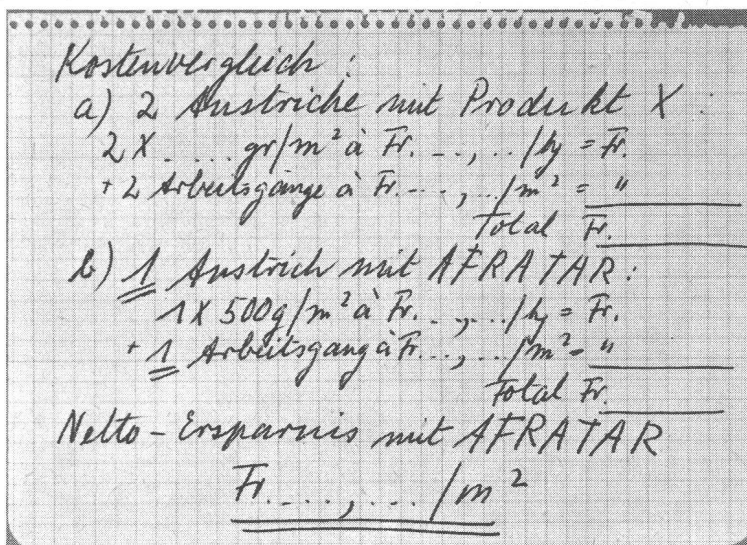 Kostenvergleich:
a) 2 Anstriche mit Produkt X:
2 X .... gr/m² à Fr. ..,../kg = Fr.
+ 2 Arbeitsgänge à Fr. ...,../m² = "
Total Fr.
b) 1 Anstrich mit AFRATAR:
1 X 500g/m² à Fr. ..,../kg = Fr.
+ 1 Arbeitsgang à Fr. ...,../m² = "
Total Fr.
Netto-Ersparnis mit AFRATAR
Fr. ....,.../m²